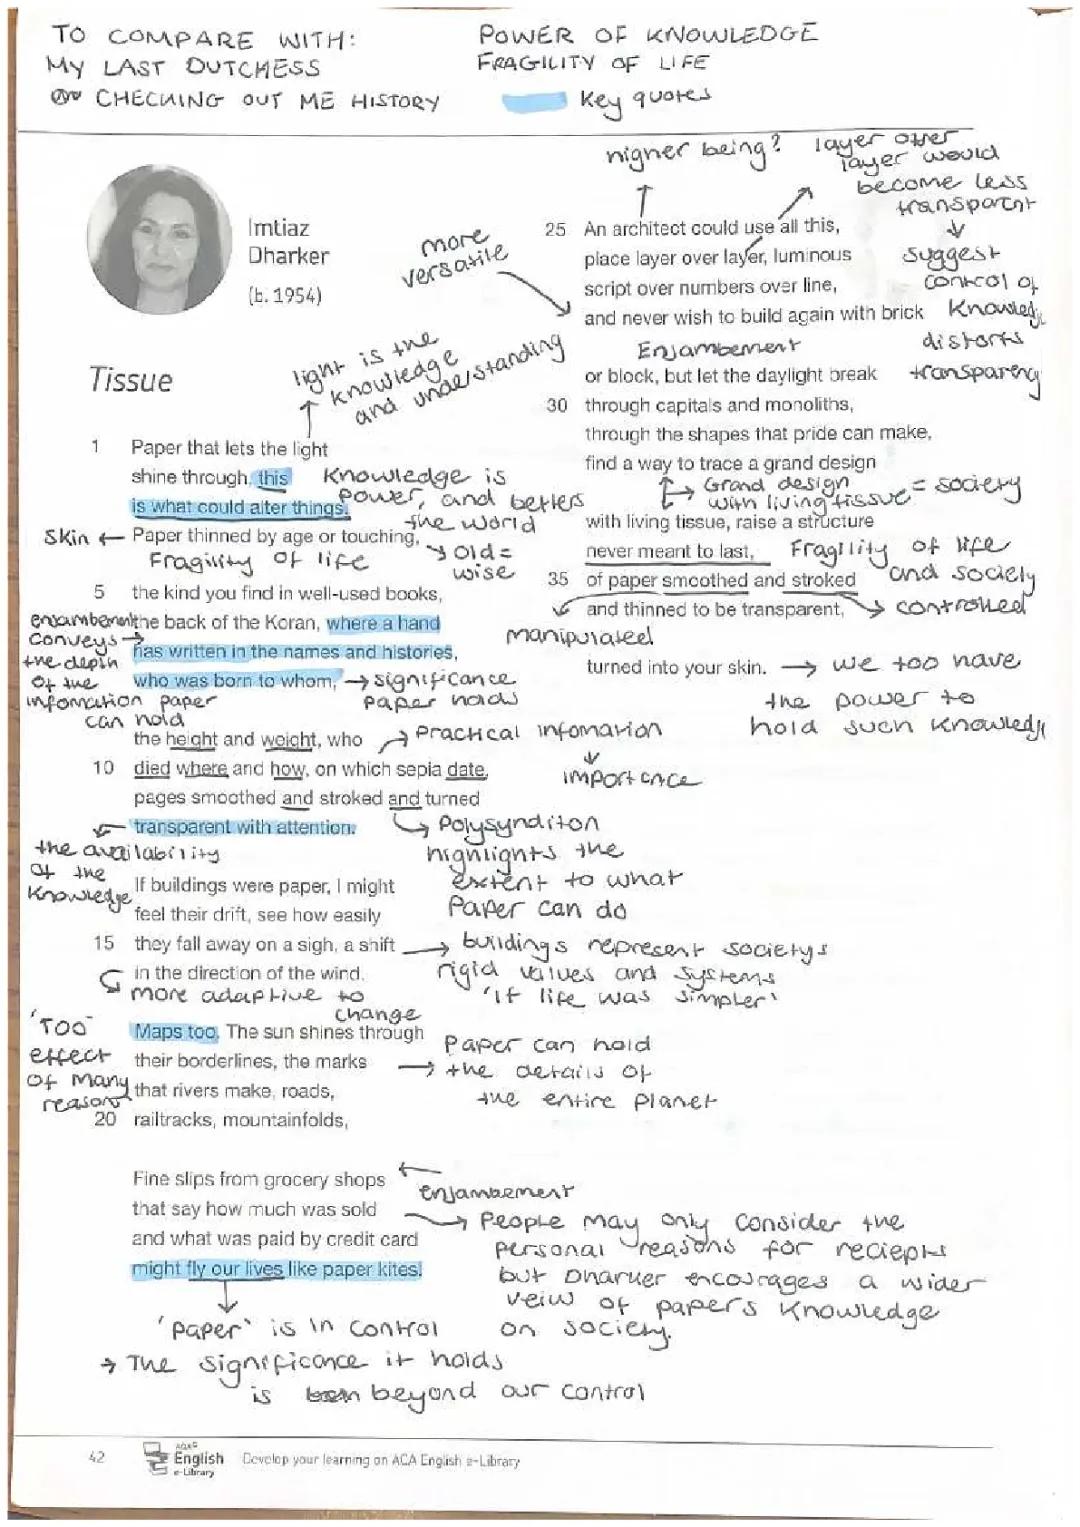 TO COMPARE WITH:
MY LAST DUTCHESS
CHECKING OUT ME HISTORY
POWER OF KNOWLEDGE
FRAGILITY OF LIFE
Key quotes
Imtiaz
Dharker
(b. 1954)
Tissue
light is the
knowledge
and understanding
1 Paper that lets the light
shine through, this
Knowledge is
is what could alter things.
power, and betters
the world
Skin ← Paper thinned by age or touching,
Fragility of life
→ old =
wise
5 the kind you find in well-used books,
the back of the Koran, where a hand
has written in the names and histories,
who was born to whom,
enjambement
conveys →
the depth
of the
infomation paper
can hold
→ significance
paper holds
the height and weight, who
→ Practical infomation
↓
importance
10 died where and how, on which sepia date,
pages smoothed and stroked and turned
transparent with attention.
the availability
of the
knowledge
→ Polysynditon
highlights the
extent to what
Paper can do
If buildings were paper, I might
feel their drift, see how easily
15 they fall away on a sigh, a shift
in the direction of the wind.
more adaptive to
change
→ buildings represent societys
rigid values and systems
'if life was simpler'
Maps too. The sun shines through
their borderlines, the marks
that rivers make, roads,
20 railtracks, mountainfolds,
'TOO'
effect
of many
reasons
→ Paper can hold
the details of
the entire planet
Fine slips from grocery shops
that say how much was sold
and what was paid by credit card
might fly our lives like paper kites.
← enjambement
→ People may only consider the
personal reasons for reciepts
but Dharker encourages a wider
veiw of papers knowledge
on society.
'paper' is in control
→ The significance it holds
is beyond our control
higher being?
layer over
layer would
become less
transparent
↓
suggest
control of
Knowledge
distorts
transparency
more
versatile
25 An architect could use all this,
place layer over layer, luminous
script over numbers over line,
and never wish to build again with brick
Enjambement
or block, but let the daylight break
30 through capitals and monoliths,
through the shapes that pride can make,
find a way to trace a grand design
→ Grand design
with living tissue = society
with living tissue, raise a structure
never meant to last,
Fragility of life
and society
35 of paper smoothed and stroked
and thinned to be transparent,
→ controlled
manipulated
turned into your skin.
→ we too have
the power to
hold such knowledge
42
AQA
English
e-Library
Develop your learning on AQA English e-Library